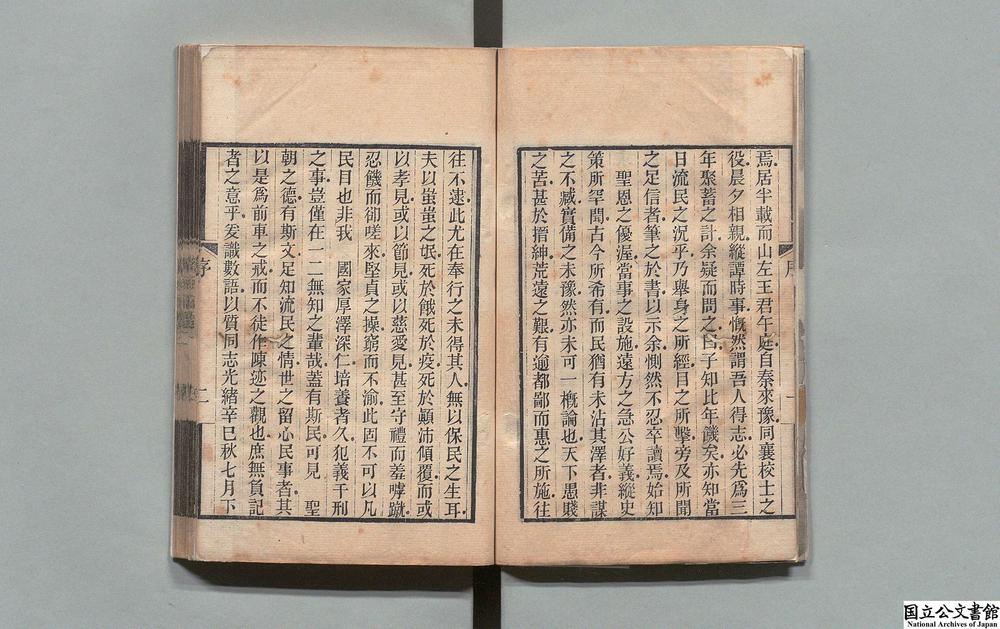 焉居半載而山左王君午庭自秦來豫同襄校士之
役晨夕相親縱譚時事慨然謂吾人得志必先爲三
年聚蓄之計余疑而問之曰子知比年饑矣亦知當
日流民之況乎乃舉身之所經目之所擊旁及所聞
之足信者筆之於書以示余惻然不忍卒讀焉始知
聖恩之優渥當事之設施遠方之急公好義縱史
策所罕聞古今所希有而民猶有未沾其澤者非謀
之不臧實備之未豫然亦未可一概論也天下愚賤
之苦甚於搢紳荒遠之艱有逾都鄙而惠之所施往
往不逮此尤在奉行之未得其人無以保民之生耳
夫以蚩蚩之氓死於餓死於疫死於顚沛傾覆而或
以孝見或以節見或以慈愛見甚至守禮而羞嘑蹴
忍饑而卻嗟來堅貞之操窮而不渝此固不可以凡
民目也非我 國家厚澤深仁培養者久犯義干刑
之事豈僅在一二無知之輩哉蓋有斯民可見 聖
朝之德有斯文足知流民之情世之留心民事者其
以是爲前車之戒而不徒作陳迹之觀也庶無負記
者之意乎爰識數語以質同志光緒辛巳秋七月下
序
二
国立公文書館
National Archives of Japan